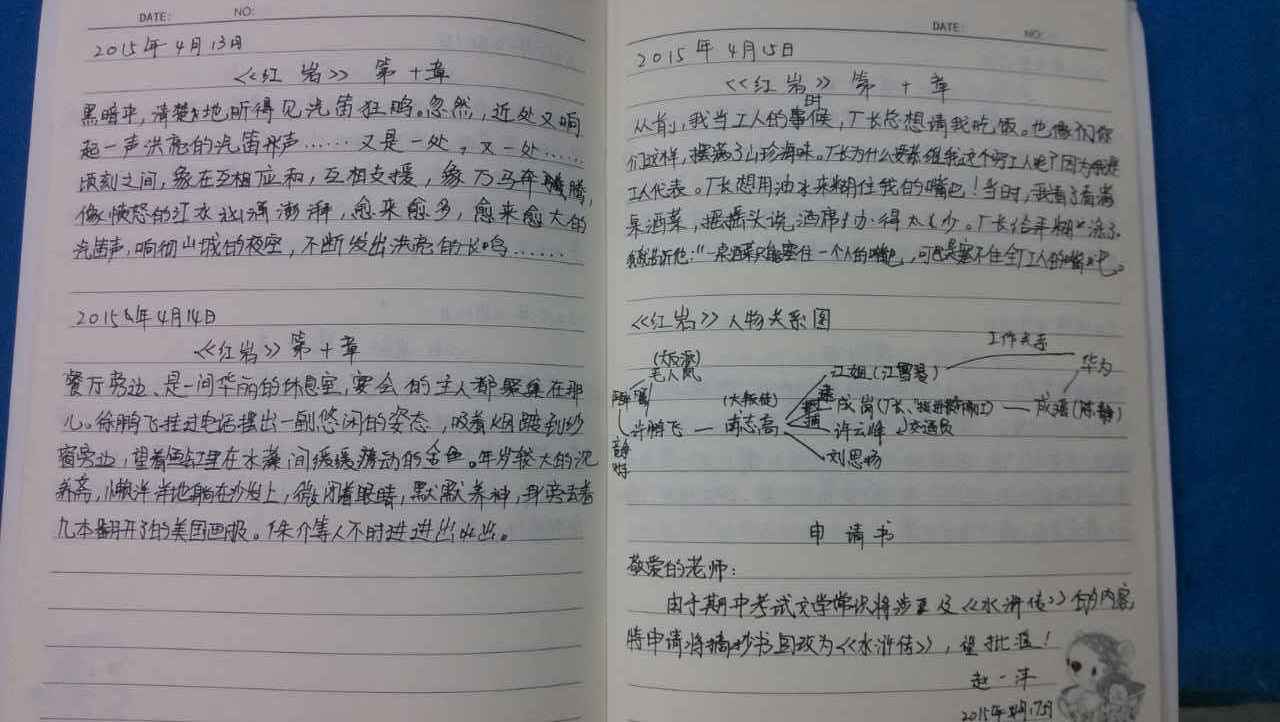 DATE: NO:
2015年4月13日
《红岩》 第十章
黑暗中，清楚地听得见汽笛狂鸣。忽然，近处又响
起一声洪亮的汽笛声……又是一处，又一处……
顷刻之间，象在互相应和，互相支援，象万马奔腾，
像愤怒的江水汹涌澎湃，愈来愈多，愈来愈大的
汽笛声，响彻山城的夜空，不断发出洪亮的长鸣……
2015年4月14日
《红岩》第十章
餐厅旁边、是一间华丽的休息室，宴会的主人都聚集在那
儿。徐鹏飞挂过电话摆出一副悠闲的姿态，吸着烟踱到纱
窗旁边，望着鱼缸里在水藻间缓缓游动的金鱼。年岁较大的沈
养斋，懒洋洋地躺在沙发上，微闭着眼睛，默默养神，身旁丢着
几本翻开了的美国画报。朱介等人不时进进出出。
DATE: NO:
2015年4月15日
《红岩》第十章
从前，我当工人的时候，厂长总想请我吃饭。也像你
们这样，摆满了山珍海味。厂长为什么要请我这个穷工人呢？因为我是
工人代表。厂长想用油水来糊住我的嘴巴！当时，我看了看满
桌酒菜，摇摇头说酒席办得太少。厂长给弄糊涂了
我就告诉他：“一桌酒菜只能塞住一个人的嘴巴，可是塞不住全厂工人的嘴巴。
《红岩》人物关系图
工作关系
(大反派)
毛人凤
江姐(江雪琴)
华为
(大叛徒)
徐鹏飞 — 甫志高
逮捕
成岗(厂长、
— 成瑶(陈静)
许云峰
交通员
刘思扬
申请书
敬爱的老师：
由于期中考试文学常识将涉及《水浒传》的内容，
特申请将摘抄书目改为《水浒传》，望批准！
赵一洋
2015年4月17日